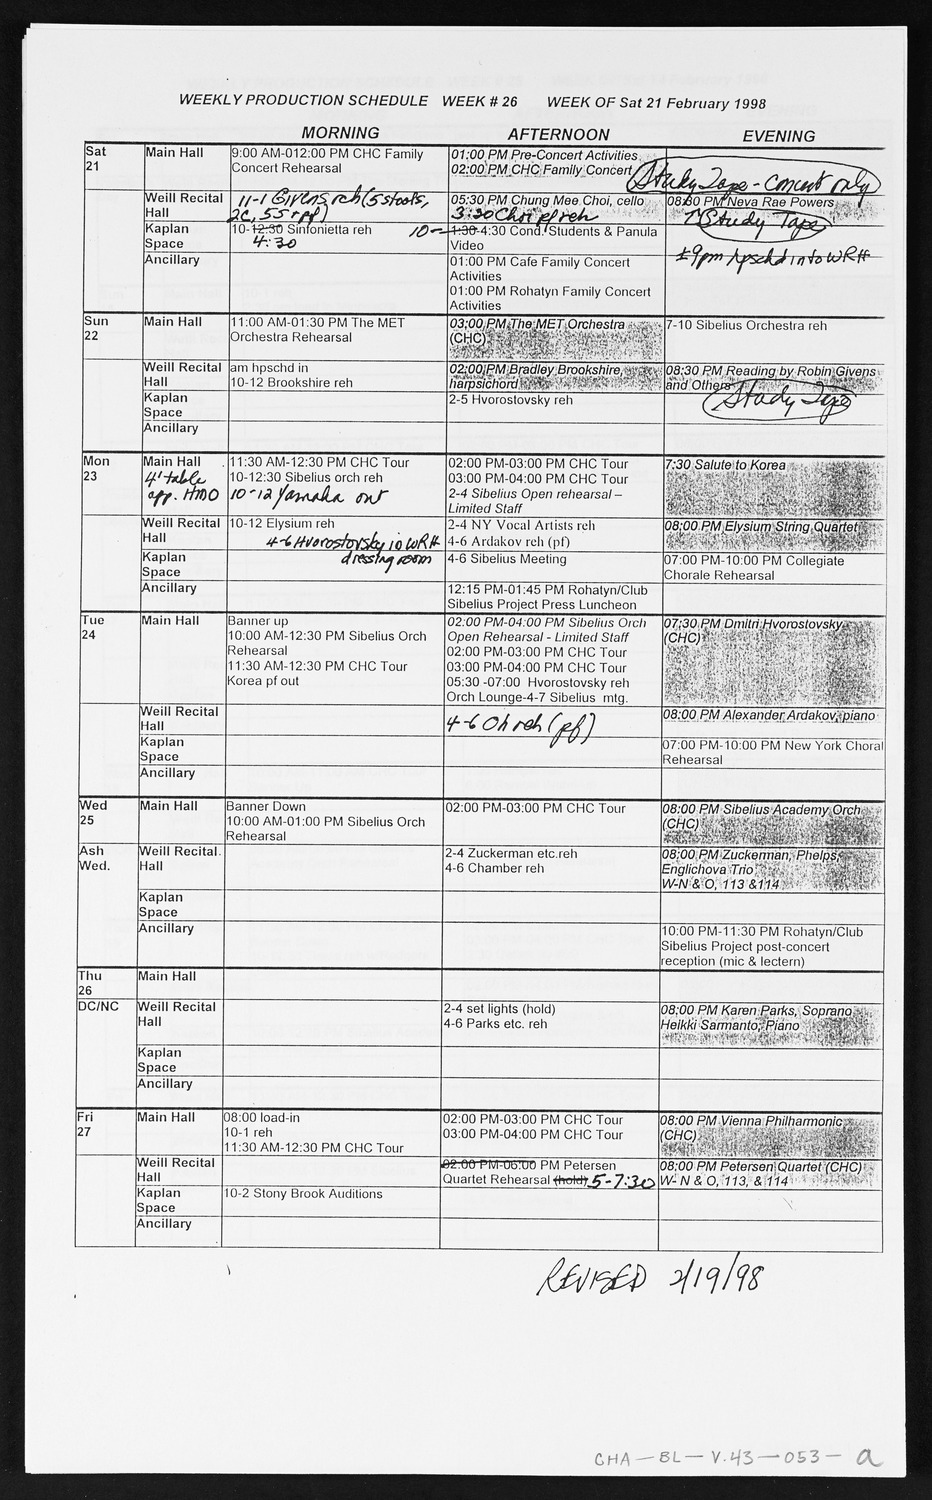 WEEKLY PRODUCTION SCHEDULE WEEK # 26 WEEK OF Sat 21 February 1998
MORNING AFTERNOON EVENING
Sat
21
Main Hall
9:00 AM-012:00 PM CHC Family
Concert Rehearsal
01:00 PM Pre-Concert Activities
02:00 PM CHC Family Concert
Study Tape - concert only
Weill Recital
Hall
11-1 Givens reh (5 stools,
2c, 55 r pf)
05:30 PM Chung Mee Choi, cello
3:30 Choi pf reh
08:30 PM Neva Rae Powers
Study Tape
Kaplan
Space
10-12:30 Sinfonietta reh
4:30
10-
1:30-4:30 Cond. Students & Panula
Video
±9pm hpschd into WRH
Ancillary
01:00 PM Cafe Family Concert
Activities
01:00 PM Rohatyn Family Concert
Activities
Sun
22
Main Hall
11:00 AM-01:30 PM The MET
Orchestra Rehearsal
03:00 PM The MET Orchestra
(CHC)
7-10 Sibelius Orchestra reh
Weill Recital
Hall
am hpschd in
10-12 Brookshire reh
02:00 PM Bradley Brookshire,
harpsichord
08:30 PM Reading by Robin Givens
and Others
Study Tape
Kaplan
Space
2-5 Hvorostovsky reh
Ancillary
Mon
23
Main Hall
4' table
app. HMO
11:30 AM-12:30 PM CHC Tour
10-12:30 Sibelius orch reh
10-12 Yamaha out
02:00 PM-03:00 PM CHC Tour
03:00 PM-04:00 PM CHC Tour
2-4 Sibelius Open rehearsal –
Limited Staff
7:30 Salute to Korea
Weill Recital
Hall
10-12 Elysium reh
4-6 Hvorostovsky in WRH
dressing room
2-4 NY Vocal Artists reh
4-6 Ardakov reh (pf)
08:00 PM Elysium String Quartet
Kaplan
Space
4-6 Sibelius Meeting
07:00 PM-10:00 PM Collegiate
Chorale Rehearsal
Ancillary
12:15 PM-01:45 PM Rohatyn/Club
Sibelius Project Press Luncheon
Tue
24
Main Hall
Banner up
10:00 AM-12:30 PM Sibelius Orch
Rehearsal
11:30 AM-12:30 PM CHC Tour
Korea pf out
02:00 PM-04:00 PM Sibelius Orch
Open Rehearsal - Limited Staff
02:00 PM-03:00 PM CHC Tour
03:00 PM-04:00 PM CHC Tour
05:30 -07:00 Hvorostovsky reh
Orch Lounge-4-7 Sibelius mtg.
07:30 PM Dmitri Hvorostovsky
(CHC)
Weill Recital
Hall
4-6 Oh reh (pf)
08:00 PM Alexander Ardakov, piano
Kaplan
Space
07:00 PM-10:00 PM New York Choral
Rehearsal
Ancillary
Wed
25
Main Hall
Banner Down
10:00 AM-01:00 PM Sibelius Orch
Rehearsal
02:00 PM-03:00 PM CHC Tour
08:00 PM Sibelius Academy Orch
(CHC)
Ash
Wed.
Weill Recital
Hall
2-4 Zuckerman etc.reh
4-6 Chamber reh
08:00 PM Zuckerman, Phelps,
Englichova Trio
W-N & O, 113 &114
Kaplan
Space
Ancillary
10:00 PM-11:30 PM Rohatyn/Club
Sibelius Project post-concert
reception (mic & lectern)
Thu
26
Main Hall
DC/NC
Weill Recital
Hall
2-4 set lights (hold)
4-6 Parks etc. reh
08:00 PM Karen Parks, Soprano
Heikki Sarmanto, Piano
Kaplan
Space
Ancillary
Fri
27
Main Hall
08:00 load-in
10-1 reh
11:30 AM-12:30 PM CHC Tour
02:00 PM-03:00 PM CHC Tour
03:00 PM-04:00 PM CHC Tour
08:00 PM Vienna Philharmonic
(CHC)
Weill Recital
Hall
02:00 PM-06:00 PM Petersen
Quartet Rehearsal (hold) 5-7:30
08:00 PM Petersen Quartet (CHC)
W- N & O, 113, & 114
Kaplan
Space
10-2 Stony Brook Auditions
Ancillary
REVISED 2/19/98
CHA-BL-V.43-053-a